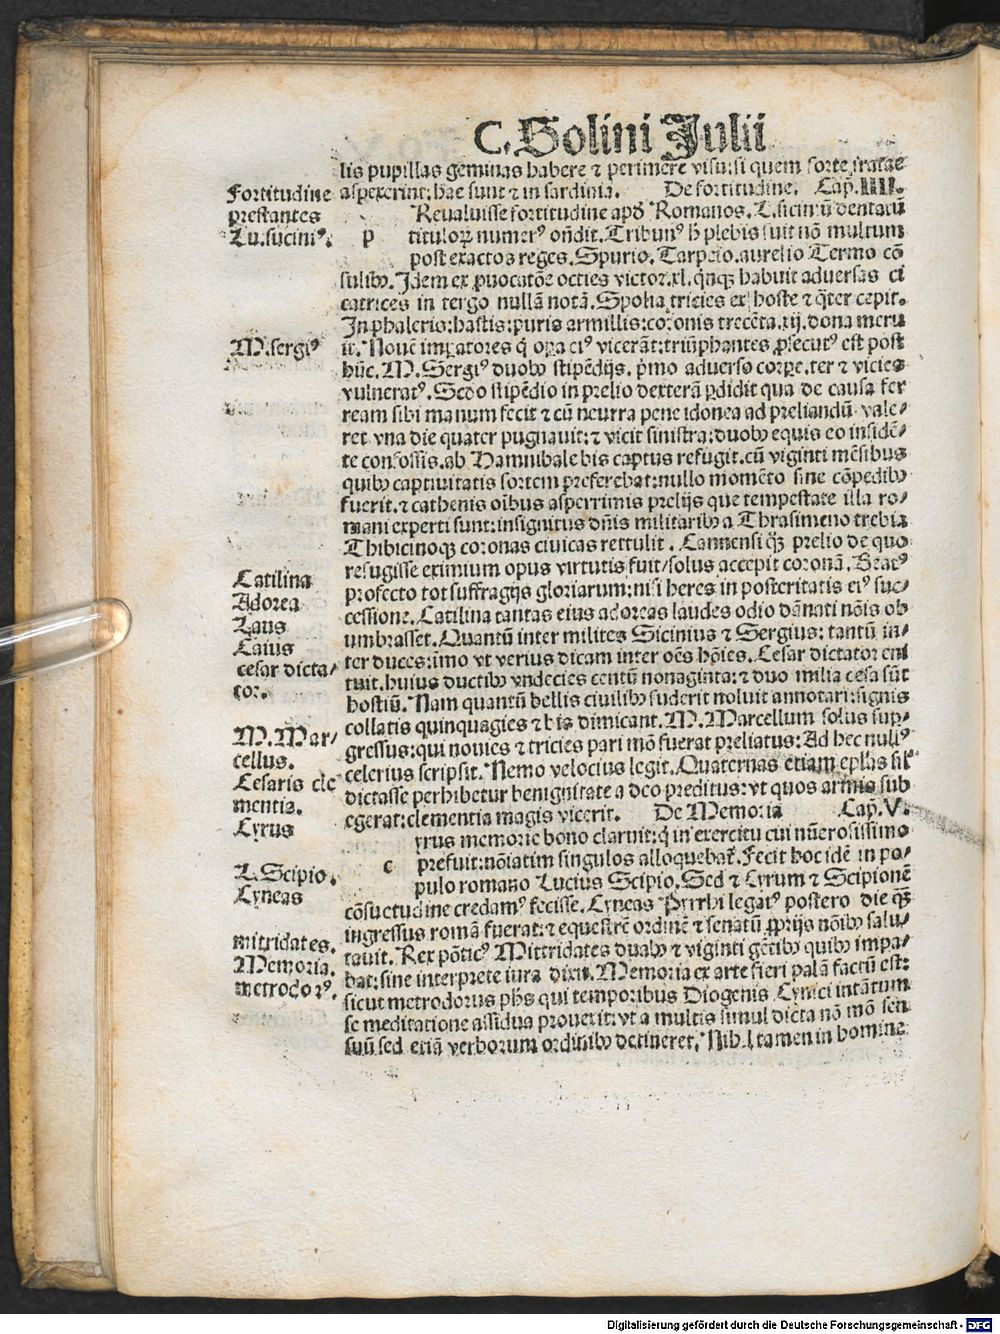 C. Solini Julii
lis pupillas geminas habere ⁊ perimere visu: si quem forte iratae
aspexerint: hae sunt ⁊ in sardinia. De fortitudine. Cap. IIII.
Reualuisse fortitudine apđ Romanos. L. siciniū dentatū
p titulorꝝ numerꝰ oñdit. Tribunꝰ ħ plebis fuit nō multum
post exactos reges. Spurio. Tarpeio. aurelio Termo cō
sulibꝫ. Idem ex ꝓuocatōe octies victor. xl. q̄nqꝫ habuit aduersas ci
catrices in tergo nullā notā. Spolia tricies ex hoste ⁊ q̄ter cepit.
In phaleris: hastis: puris armillis: coronis trecēta. xij. dona meru
it. Nouē imꝑatores q̄ oꝑa eiꝰ vicerāt: triūphantes ꝓsecutꝰ est post
hūc. M. Sergiꝰ duobꝫ stipēdijs. p̄mo aduerso corꝑe. ter ⁊ vicies
vulneratꝰ. Sedo stipēdio in prelio dexterā ꝑdidit qua de causa fer
ream sibi manum fecit ⁊ cū neutra pene idonea ad preliandū vale⸗
ret vna die quater pugnauit: ⁊ vicit sinistra: duobꝫ equis eo insidē⸗
te confossis. ab Hannibale bis captus refugit. cū viginti mēsibus
quibꝫ captiuitatis sortem preferebat: nullo momēto sine cōpedibꝫ
fuerit. ⁊ cathenis oībus asperrimis prelijs que tempestate illa ro⸗
mani experti sunt: insignitus dn̄is militaribꝫ a Thrasimeno trebia
Thibicinoqꝫ coronas ciuicas rettulit. Cannensi qꝫ prelio de quo
refugisse eximium opus virtutis fuit/solus accepit coronā. Beatꝰ
profecto tot suffragijs gloriarum: nisi heres in posteritatis eiꝰ suc⸗
cessione. Catilina tantas eius adoreas laudes odio dānati nōis ob
umbrasset. Quantū inter milites Sicinius ⁊ Sergius: tantū in⸗
ter duces: īmo vt verius dicam inter oēs hōies. Cesar dictator eni
tuit. huius ductibꝫ vndecies centū nonaginta: ⁊ duo milia cesa sūt
hostiū. Nam quantū bellis ciuilibꝫ fuderit noluit annotari: signis
collatis quinquagies ⁊ bis dimicant. M. Marcellum solus sup⸗
gressus: qui nouies ⁊ tricies pari mō fuerat preliatus: Ad hec nullꝰ
celerius scripsit. Nemo velocius legit. Quaternas etiam ep̄las sīl
dictasse perhibetur benignitate adeo preditus: vt quos armis sub
egerat: clementia magis vicerit. De Memoria Cap. V.
yrus memorie bono claruit: q̄ in exercitu cui nūerosissimo
c prefuit: nōiatim singulos alloquebať. Fecit hoc idē in po⸗
pulo romano Lucius Scipio. Sed ⁊ Cyrum ⁊ Scipionē
cōsuetudine credamꝰ fecisse. Cyneas Pyrrhi legatꝰ postero die qꝫ
ingressus romā fuerat: ⁊ equestrē ordinē ⁊ senatū ꝓprijs nōibꝫ salu⸗
tauit. Rex pōticꝰ Mittridates duabꝫ ⁊ viginti gētibꝫ quibꝫ impa⸗
bat: sine interprete iura dixit. Memoria ex arte fieri palā factū est:
sicut metrodorus ph̄s qui temporibus Diogenis Cynici intātum
se meditatione assidua prouexit: vt a multis simul dicta nō mō sen
suū sed etiā verborum ordinibꝫ detineret. Nihil tamen in homine
Fortitudine
prestantes
Lu. suciniꝰ.
M. sergiꝰ
Catilina
Adorea
Laus
Caius
cesar dicta⸗
tor.
M. Mar⸗
cellus.
Cesaris cle
mentia.
Cyrus
L. Scipio.
Cyneas
mitridates.
Memoria.
metrodorꝰ.
Digitalisierung gefördert durch die Deutsche Forschungsgemeinschaft - DFG